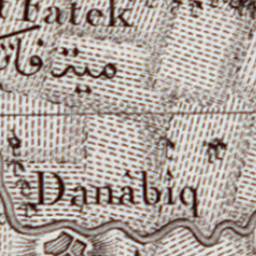 Fatek
ميت فا
Danâbiq